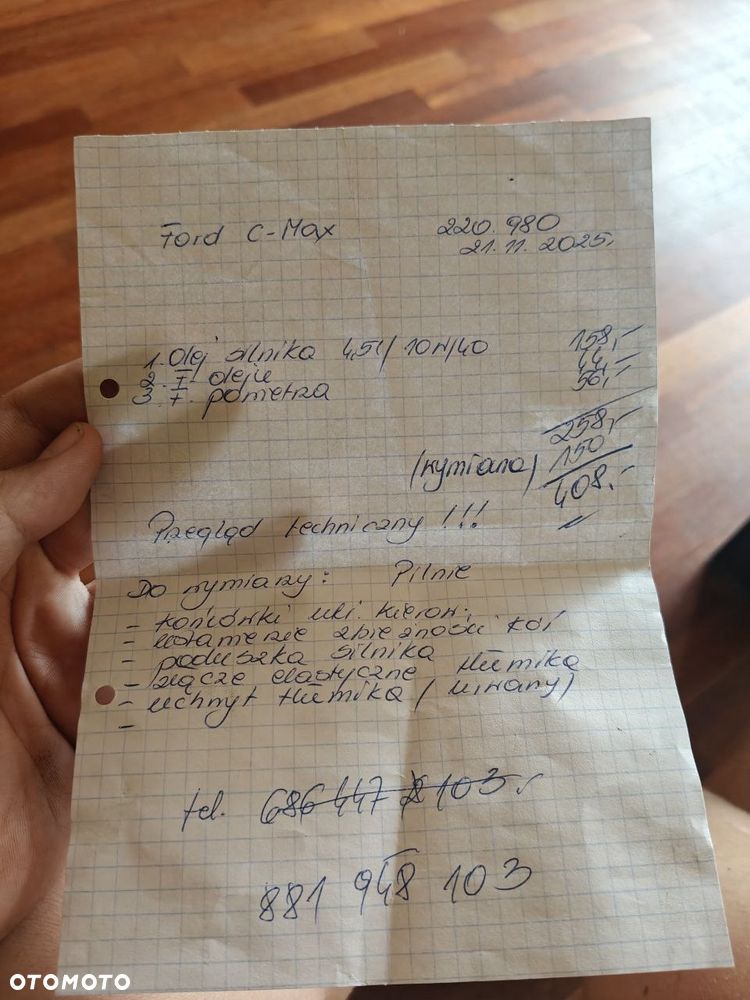 Ford C-Max 220.980
21.11.2025.
1. Olej silnika 4,5l / 10W/40 158,-
2. F. oleju 44,-
3. F. powietrza 56,-
258,-
(wymiana) 150
408,-
Przegląd techniczny !!!
Do wymiany: Pilnie
- końcówki ukł. kierow.
- ustawienie zbieżności kół
- poduszka silnika
- złącze elastyczne tłumika
- uchwyt tłumika (urwany)
-
tel. 686 447 8 103
881 948 103
OTOMOTO